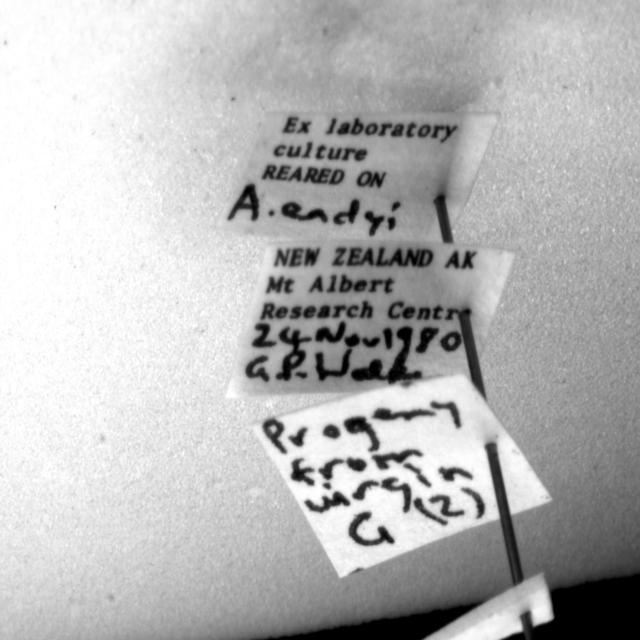 Ex laboratory
culture
REARED ON
A. endyi
NEW ZEALAND AK
Mt Albert
Research Centre
24 Nov 1980
G.P.
Progeny
from
virgin
G (2)